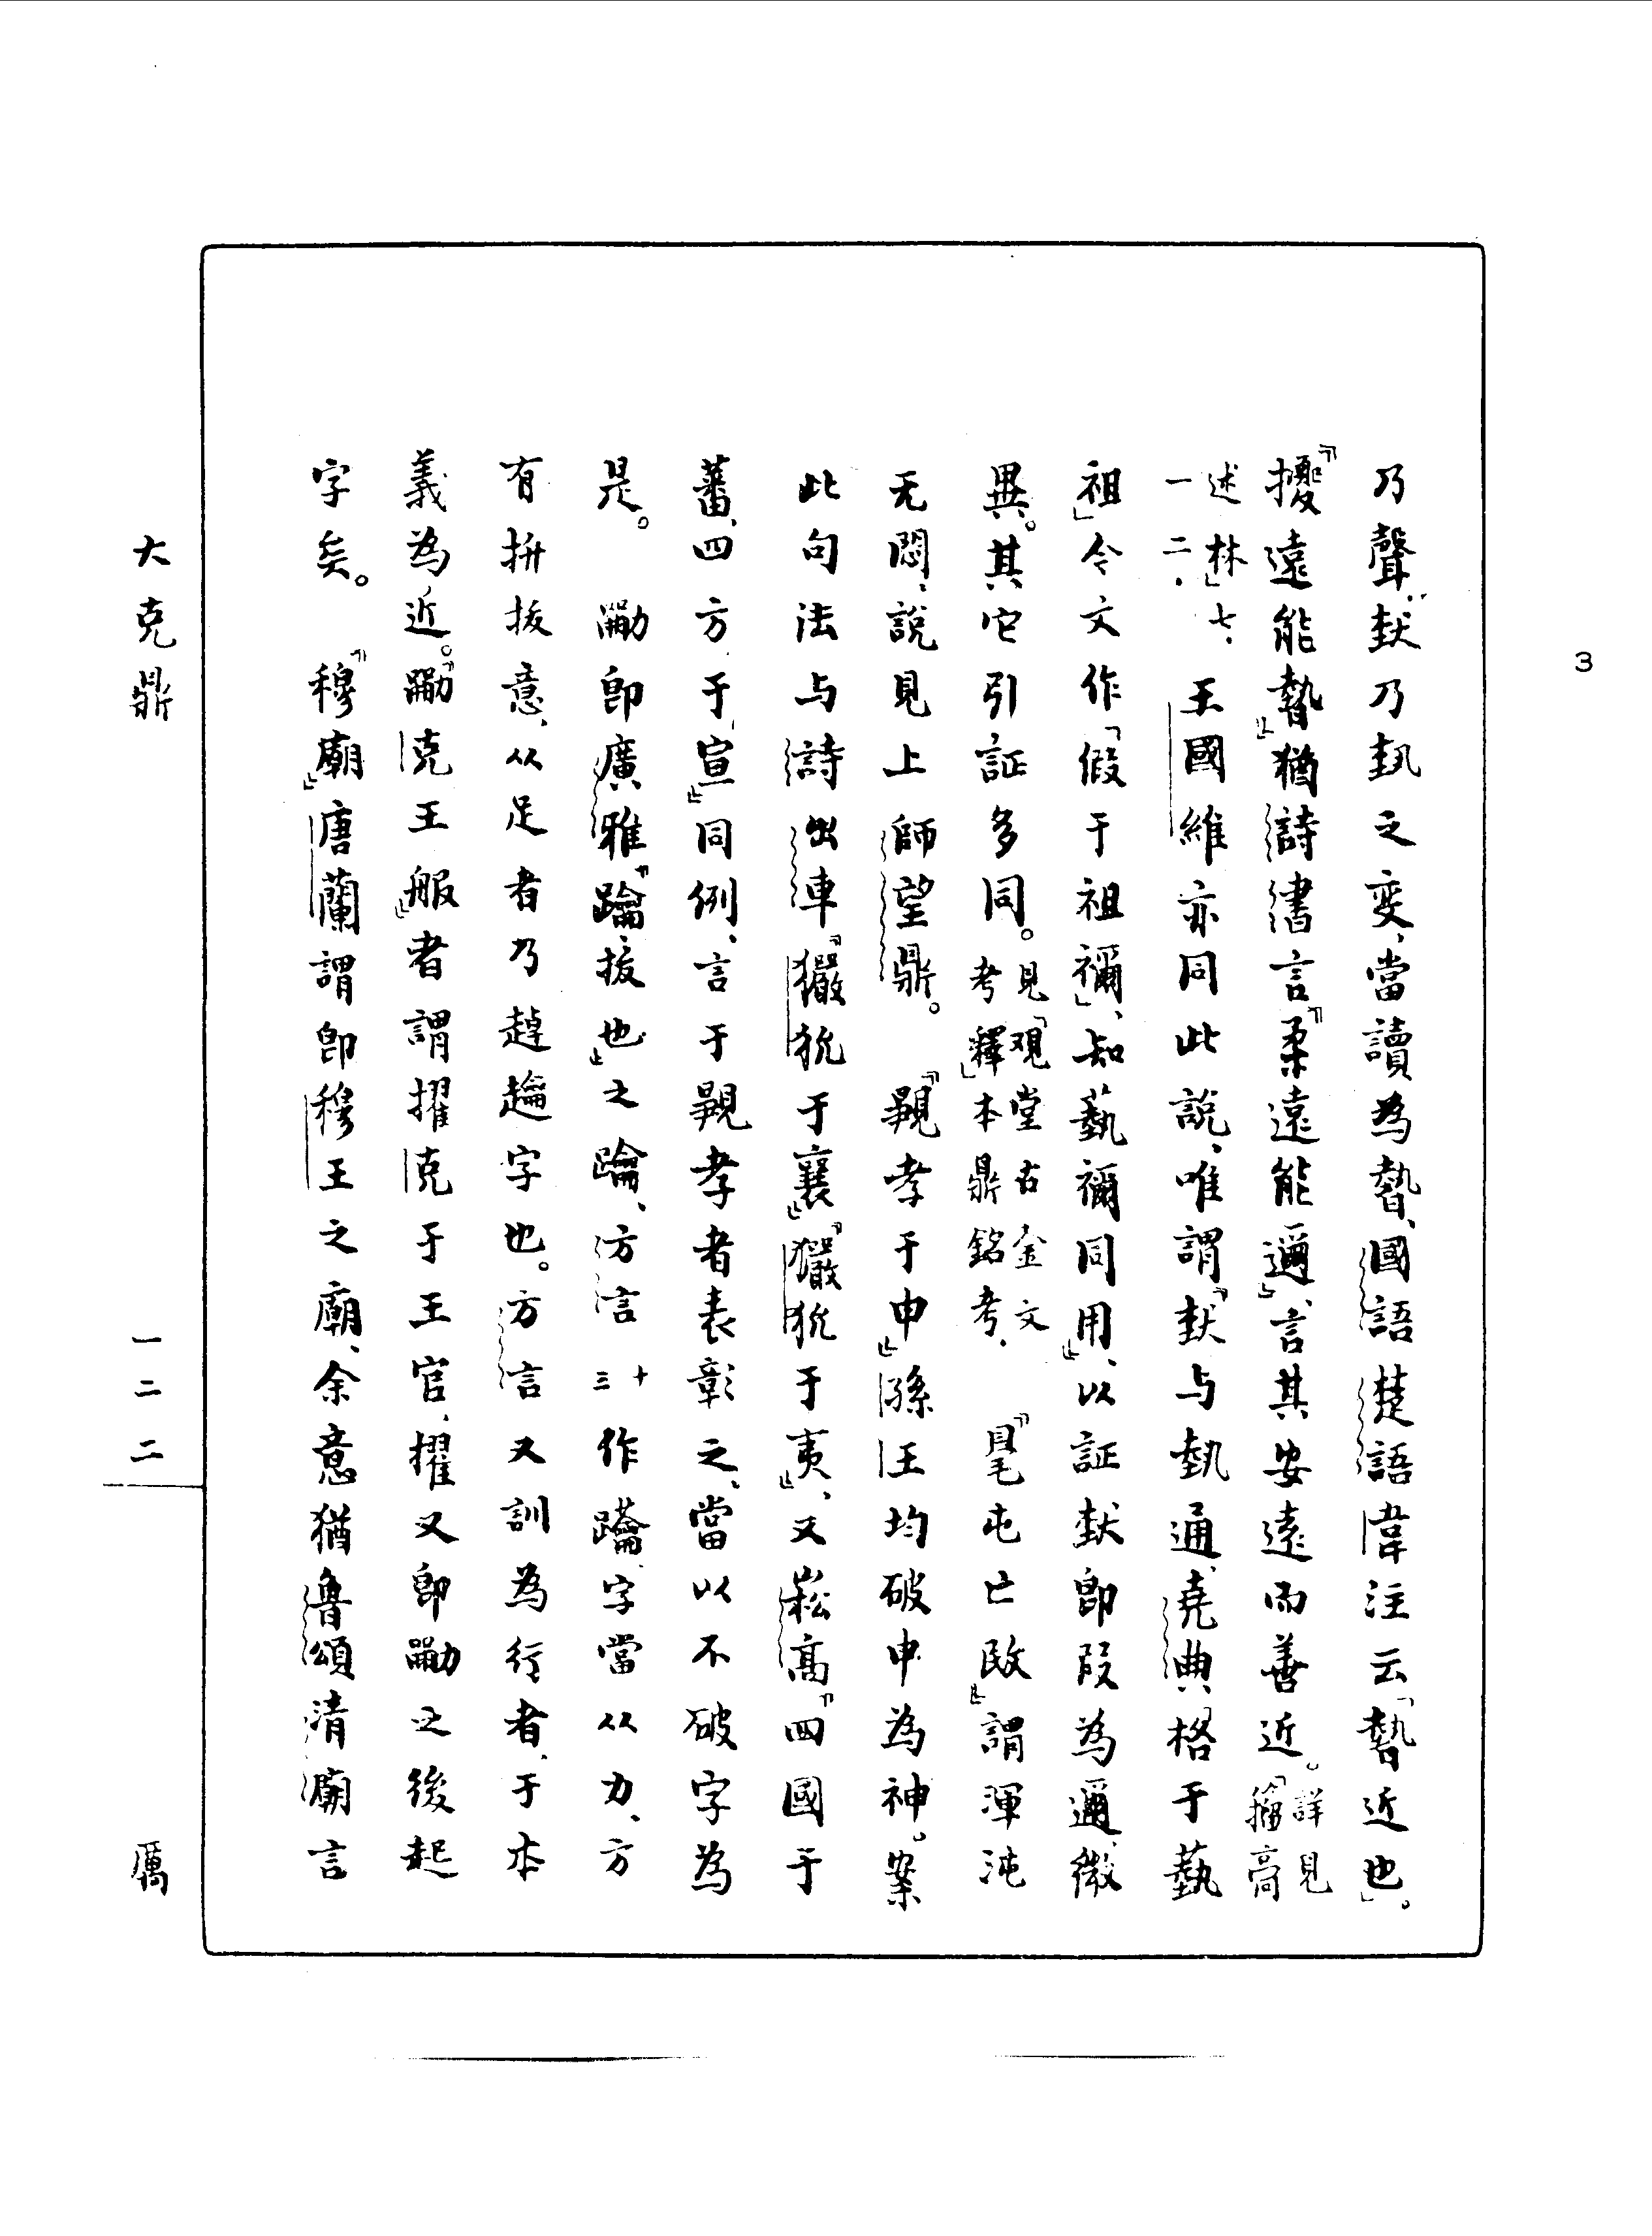 乃聲、㹜乃埶之变、當讀為暬、國語楚語韋注云「暬近也」。
『擾遠能暬』猶詩書言『柔遠能邇』、言其安遠而善近。詳見「籀高
述林」七、一二. 王國維亦同此說、唯謂『㹜与埶通、堯典「格于藝
祖」今文作「假于祖禰」、知藝禰同用』、以証㹜即叚為邇、微
異。其、它引証多同。見「觀堂古金文考釋」本鼎銘考. 『屯亡敃』謂渾沌
无悶、說見上師望鼎。 『顨孝于申』孫王均破申為神。案
此句法与詩出車『玁狁于襄』『玁狁于夷』、又崧高『四國于
蕃、四方于宣』同例、言于顨孝者表彰之、當以不破字為
是。 勵即廣雅『踚、拔也』之踚、方言十三作䠯、字當从力、方
有拚拔意、从足者乃趠䟑字也。方言又訓為行者、于本
義為近。『勵克王服』者謂擢克于王官、擢又即勵之後起
字矣。 『穆廟』唐蘭謂即穆王之廟、余意猶魯頌清廟言
大克鼎 一二二 厲
3